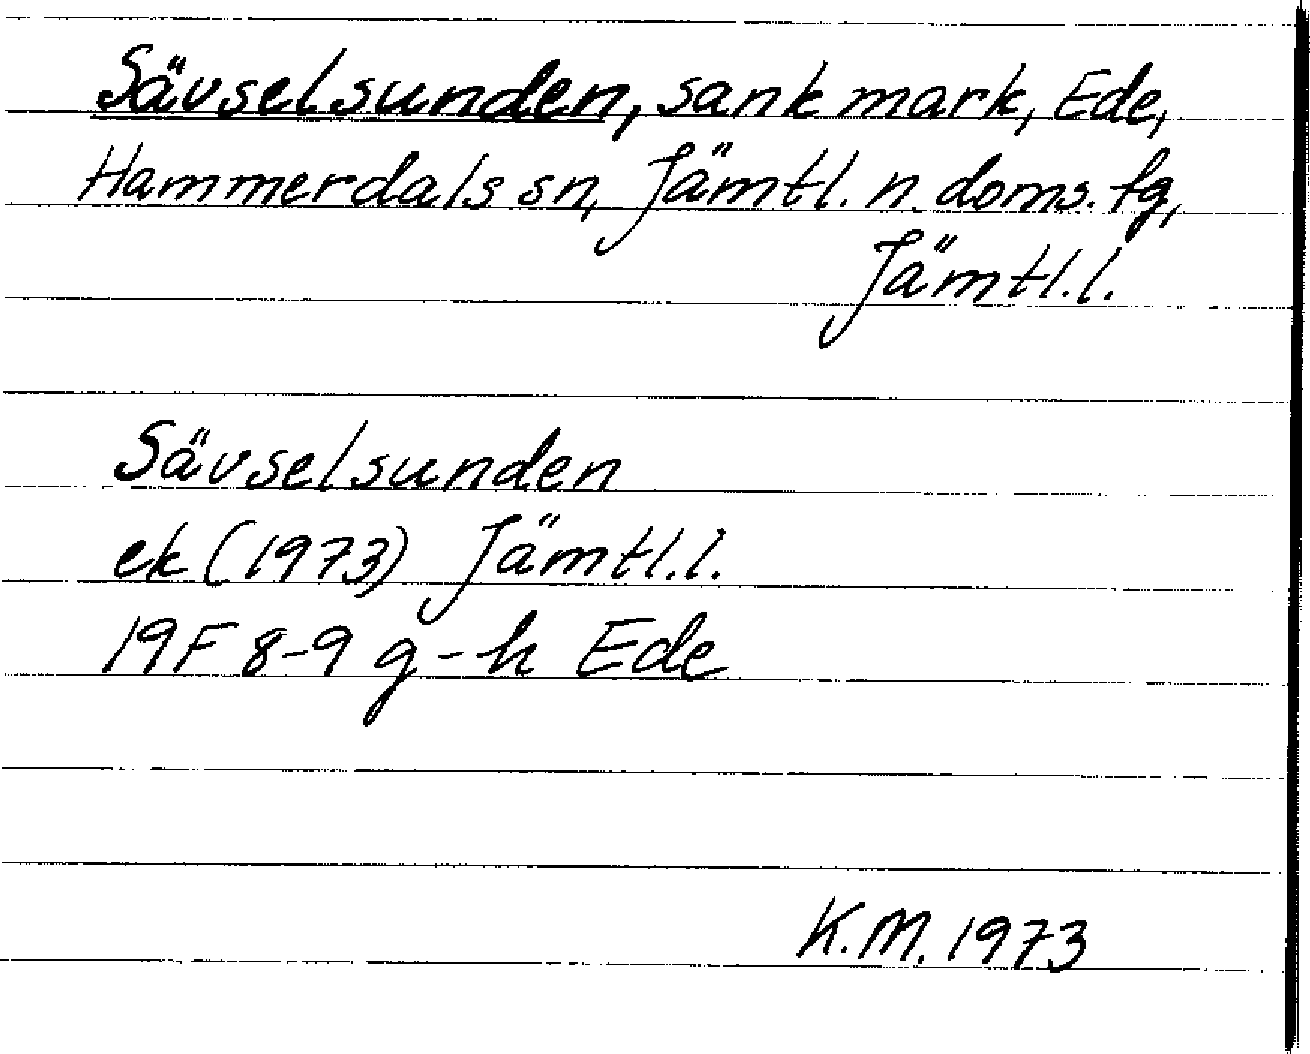 Sävselsunden, sank mark, Ede,
Hammerdals sn, Jämtl. n. doms. fg,
Jämtl. l.
Sävselsunden
ek (1973) Jämtl. l.
19F 8-9 g-h Ede
K.M. 1973